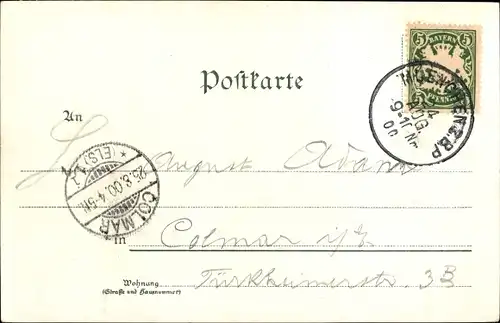 5 BAYERN 5
5 PFENNIG 5
MUENCHEN 2.B.P.
24
AUG.
9-10 Nm
00
Postkarte
An
August Adam
(ELS.)
25.8.00.4-5N.
COLMAR
in Colmar i/E
Türkheimerstr. 3B
Wohnung
(Straße und Hausnummer)